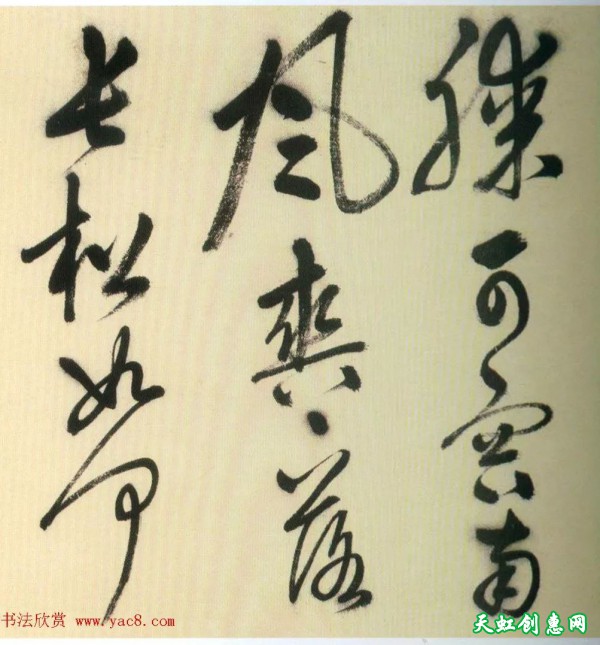 膝可容南
風爽、落
長松如何
书法欣赏 www.yac8.com
天虹创惠网